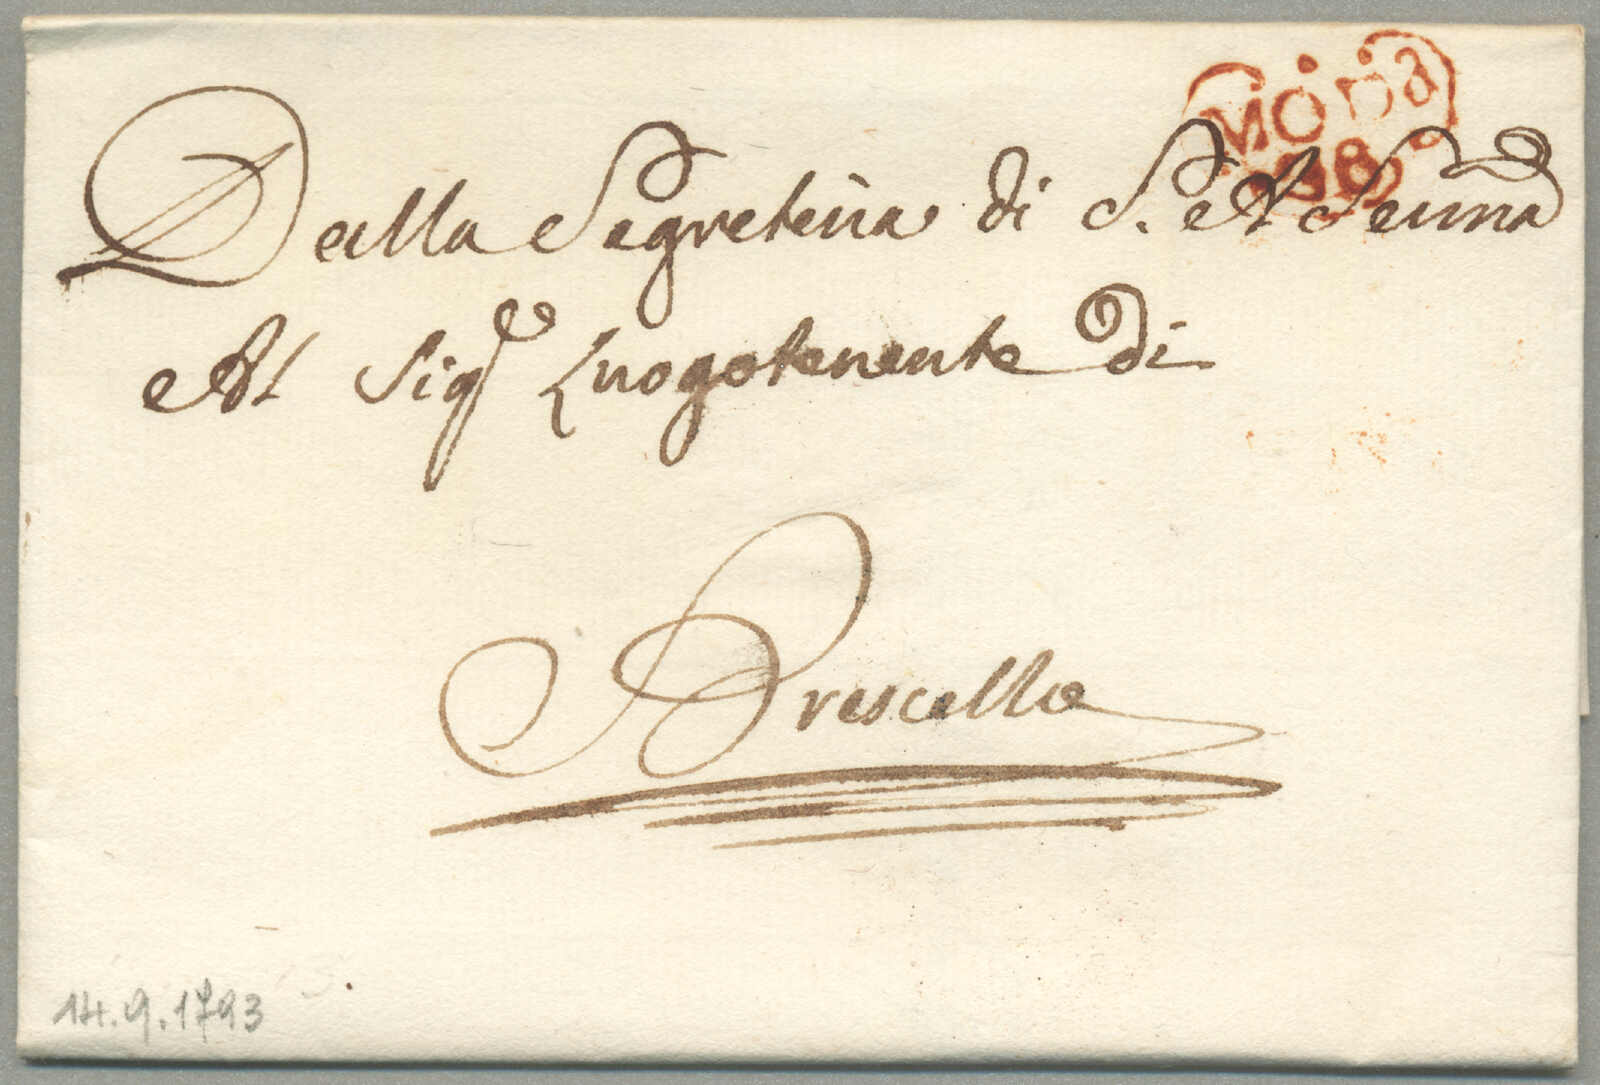 MODa
Dalla Segreteria di S. A Serma
Al Sigr Luogotenente di
Brescello
14.9.1793